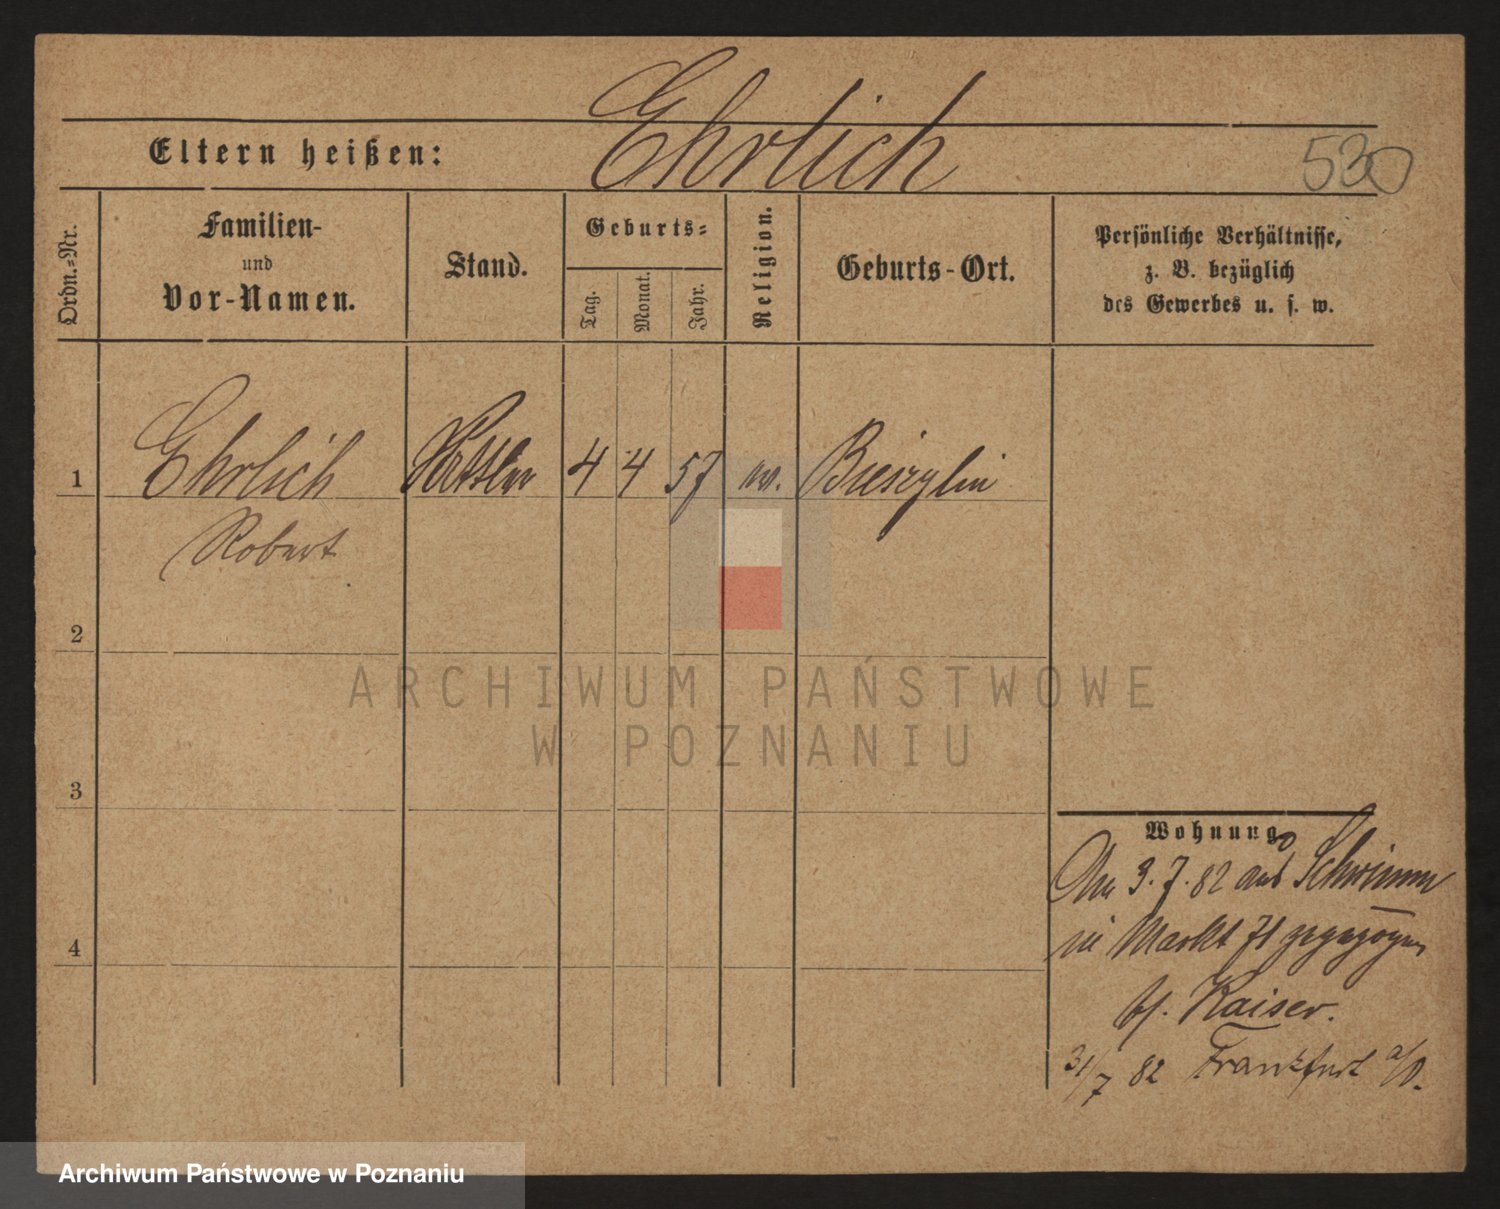 Ehrlich
Eltern heißen:
530
Ordn.-Nr.
Familien-
und
Vor-Namen.
Stand.
Geburts-
Tag.
Monat.
Jahr.
Religion.
Geburts-Ort.
Persönliche Verhältnisse,
z. B. bezüglich
des Gewerbes u. s. w.
1
Ehrlich
4
4
57
Robert
2
ARCHIWUM PAŃSTWOWE
W POZNANIU
3
Wohnung
Am 3. 7. 82 aus
in Markt 71 gezogen
bf. Kaiser.
4
31/7 82 Frankfurt a/O.
Archiwum Państwowe w Poznaniu